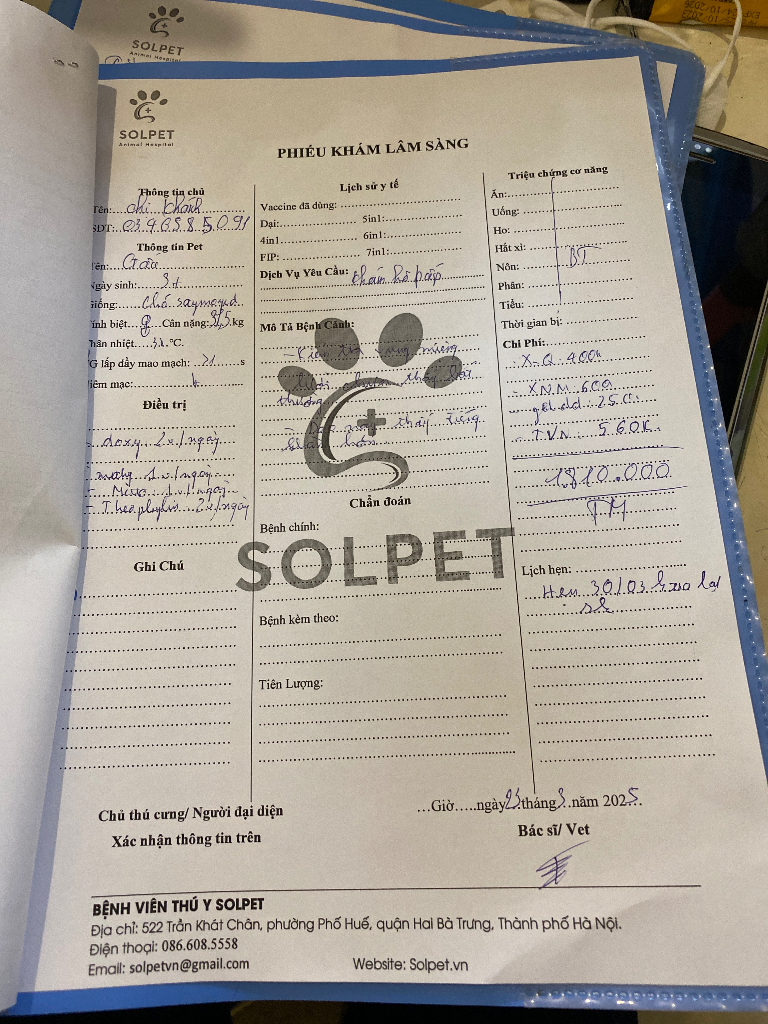 SOLPET
Animal Hospital
SOLPET
Animal Hospital
PHIẾU KHÁM LÂM SÀNG
Thông tin chủ
Tên: chị Khánh
SDT: 0396585091
Thông tin Pet
Tên: Gấu
Ngày sinh: 3t
Giống: Chó saymoyed
Tính biệt Cân nặng: kg
Thân nhiệt °C.
TG lấp đầy mao mạch: >1 s
Niêm mạc:
Điều trị
- doxy 2v/ngày
1v/ngày
1v/ngày
- Theophylin 2v/ngày
Ghi Chú
Lịch sử y tế
Vaccine đã dùng:
Dại: 5in1:
4in1 6in1:
FIP: 7in1:
Dịch Vụ Yêu Cầu: khám hô hấp
Mô Tả Bệnh Cảnh:
- Kiểm tra vùng miệng
thấy
thường
thấy tiếng
hơn
Chẩn đoán
Bệnh chính:
SOLPET
Bệnh kèm theo:
Tiên Lượng:
Triệu chứng cơ năng
Ăn:
Uống:
Ho:
Hắt xì:
Nôn: BT
Phân:
Tiểu:
Thời gian bị:
Chi Phí:
- X-Q 400k
- XNM 600
250
- TVN: 560k
1810.000
TM
Lịch hẹn:
Hẹn 30/03 lại
Chủ thú cưng/ Người đại diện
Xác nhận thông tin trên
...Giờ.....ngày 23 tháng 3 năm 2025.
Bác sĩ/ Vet
BỆNH VIỆN THÚ Y SOLPET
Địa chỉ: 522 Trần Khát Chân, phường Phố Huế, quận Hai Bà Trưng, Thành phố Hà Nội.
Điện thoại: 086.608.5558
Email: solpetvn@gmail.com Website: Solpet.vn